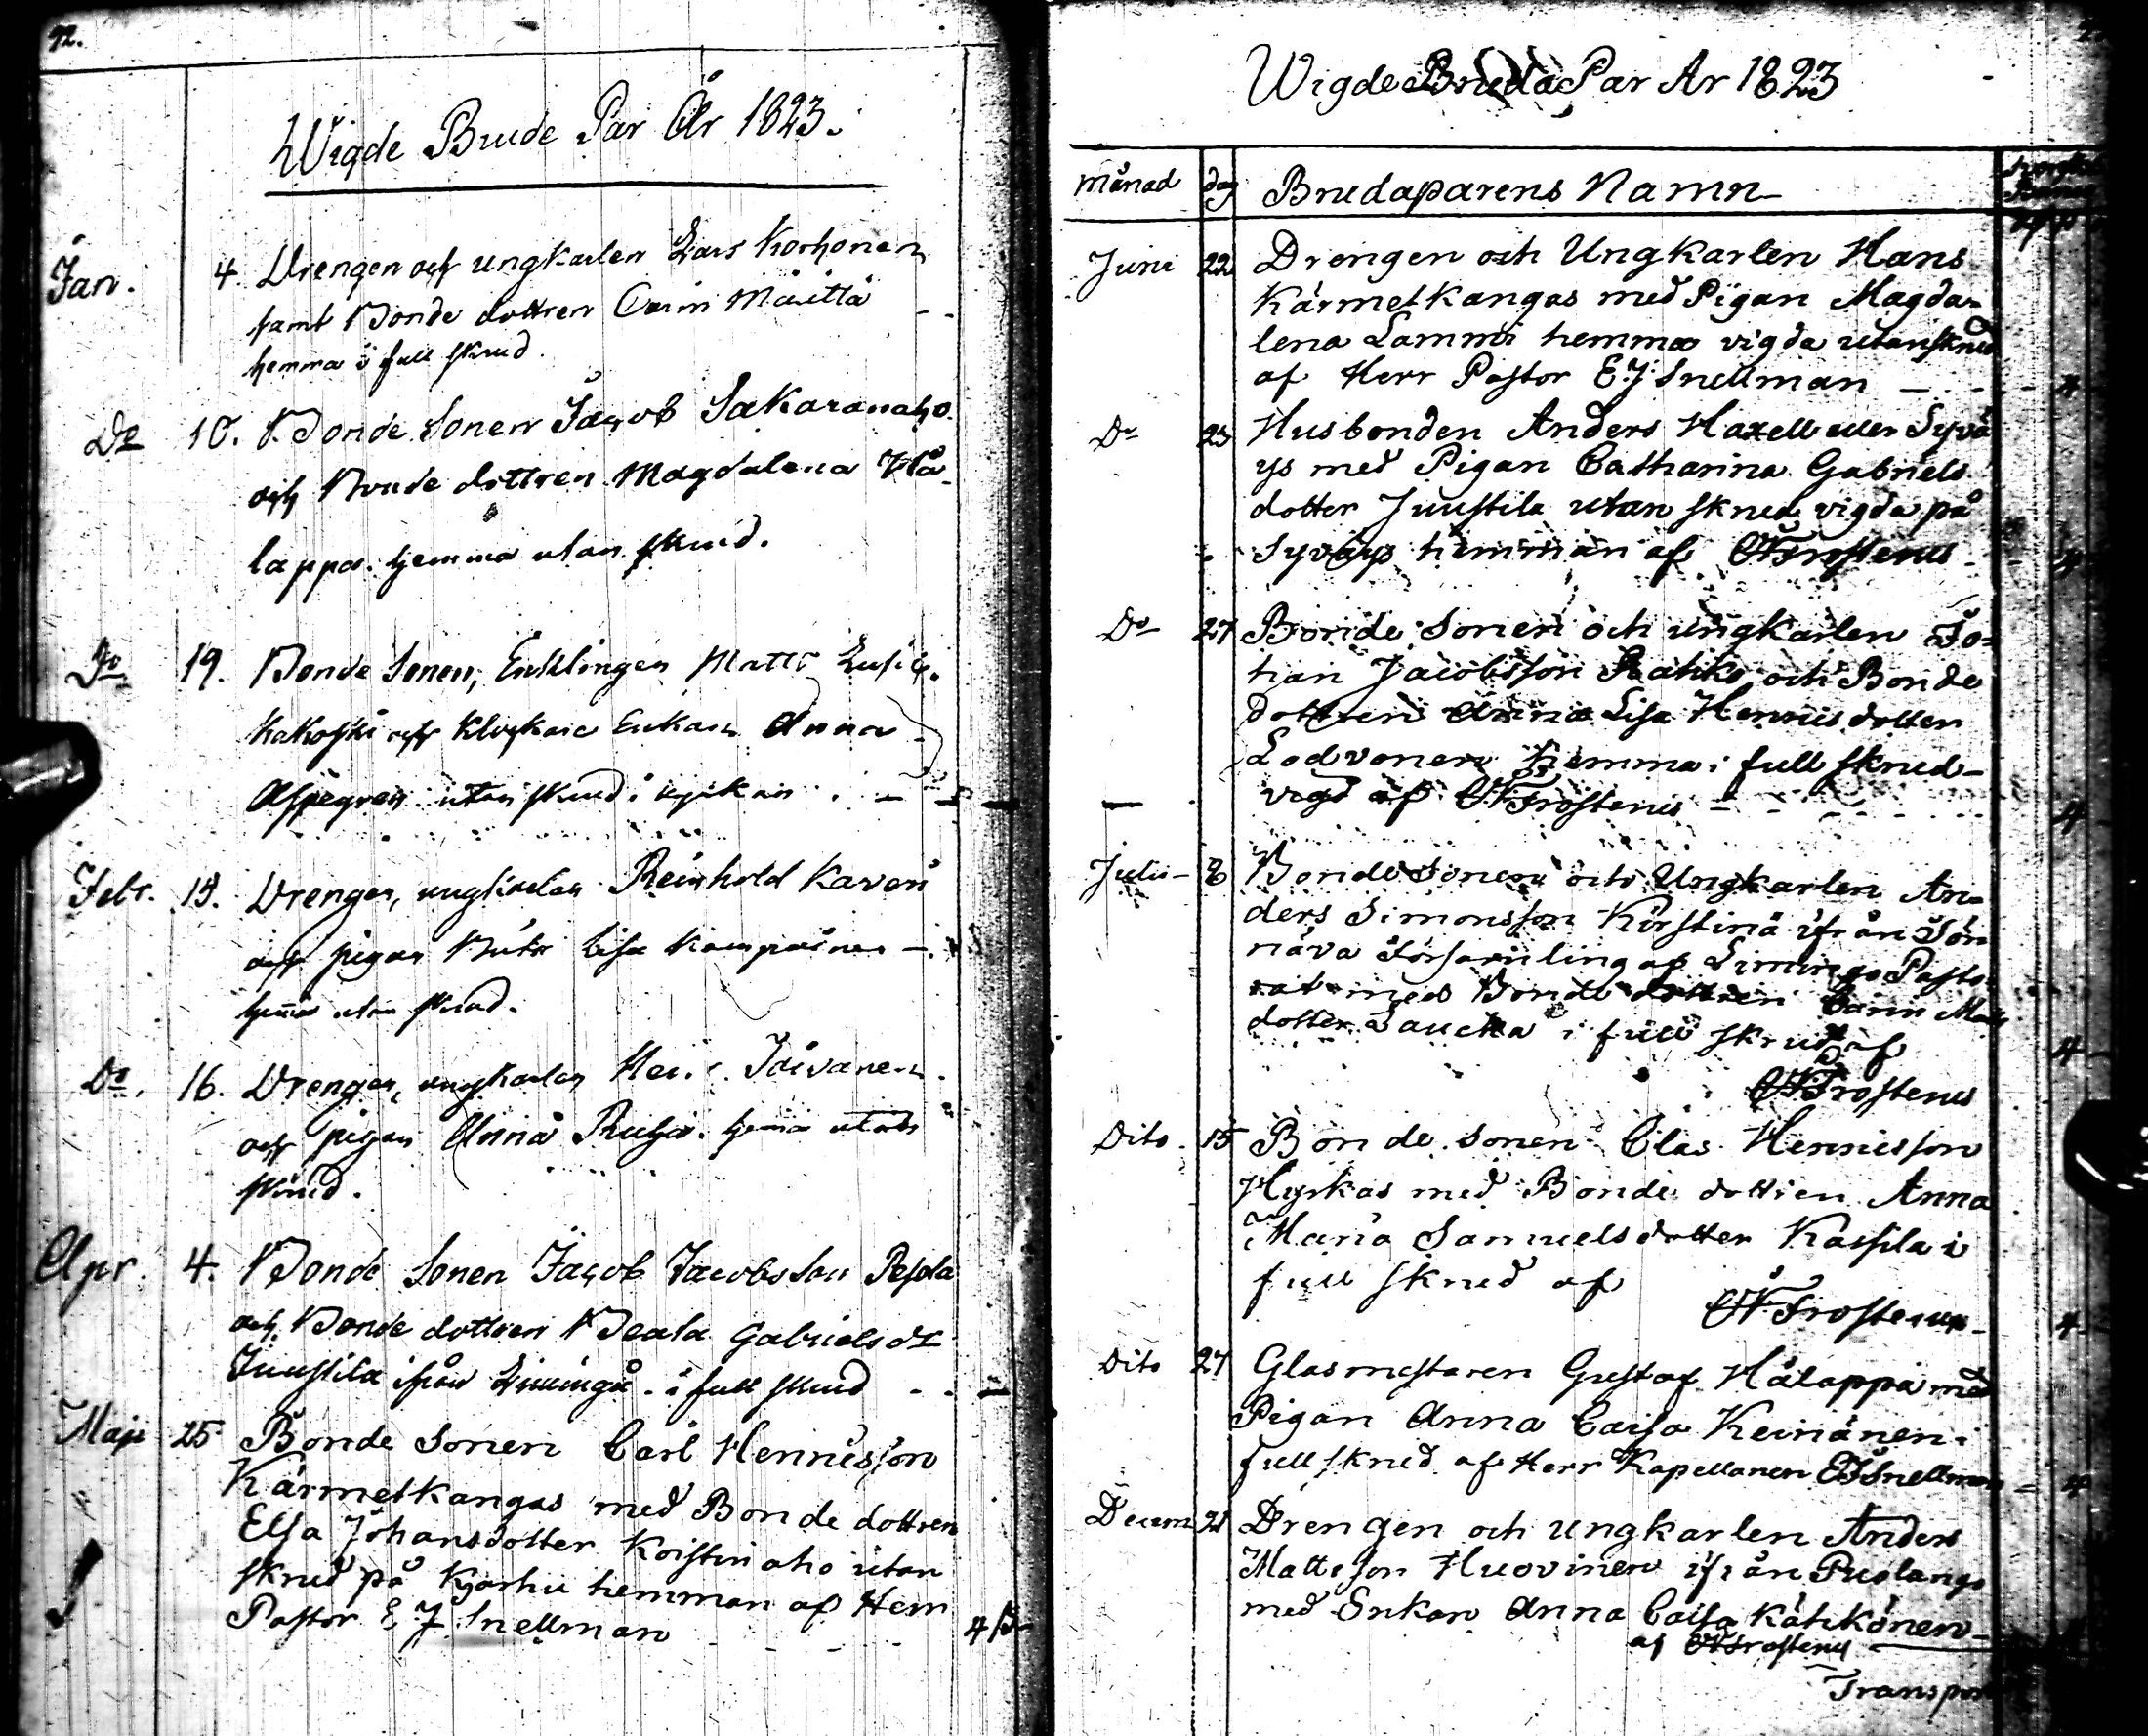 92.
Wigde Brude Par År 1823.
Jan. 4. Drengen och ungkarlen Lars Korhonen
samt Bonde dottren Carin Määttä
hemma i full skrud.
Do 10. Bonde Sonen Jacob Sakaranaho
och Bonde dottren Magdalena Hå-
lappa. hemma utan skrud.
Do 19. Bonde Sonen, Enklingen Matts
och Klockare Enkan Anna
utan skrud i kyrkan.
Febr. Drengen, ungkarlen Reinhold Kaveri
och pigan Brita Lisa Komporinen
hema utan skrud.
Do. 16. Drengen, ungkarlen Jaivanen
och pigan Anna hema utan
skrud.
Apr. 4. Bonde Sonen Jacob Jacobsson Pesola
och Bonde dottren Beata Gabrielsdr
Juustila ifrån Limingå. i full skrud
Maji 25 Bonde Sonen Carl Hennesson
Kärmetkangas med Bonde dottren
Elsa Johansdotter Koistin aho utan
skrud på Karhu hemman af Herr
Pastor E J Snellman 4
Wigde Bruda Par Ar 1823
Månad dag Brudaparens Namn
Juni 22 Drengen och Ungkarlen Hans
Kärmetkangas med Pigan Magda-
lena Lammi hemma vigda utan skrud
af Herr Pastor E J Snellman 4
Do 23 Husbonden Anders Haxell eller Syvä
ys med Pigan Catharina Gabriels
dotter Juustila utan skrud vigda på
Syväys hemman af Frostenus 4
Do 27 Bonde Sonen och ungkarlen Jo-
han Jacobsson Rahko och Bonde
dottren Anna Lisa Hennisdotter
Lodvonen hemma i full skrud
vigd af Frostenus 4
Julii 8 Bonde Sonen och Ungkarlen An-
ders Simonsson Kirstinä ifrån
näva Församling af Limingo Pasto-
rat med Bonde dottren Carin Matts
dotter Laucka i full skrud af 4
Frostenus
Dito 15 Bonde Sonen Clas Hennesson
Hyrkas med Bonde dottren Anna
Maria Samuelsdotter Kassila i
full skrud af
Frostenus 4
Dito 27 Glasmestaren Gustaf Hålappa med
Pigan Anna Caisa Keinänen i
full skrud af Herr Kapellanen E J Snellman 4
Decem 21 Drengen och ungkarlen Anders
Mattsson Huovinen ifrån Puolango
med Enkan Anna Caisa Kähkönen
af Frostenus
Transport